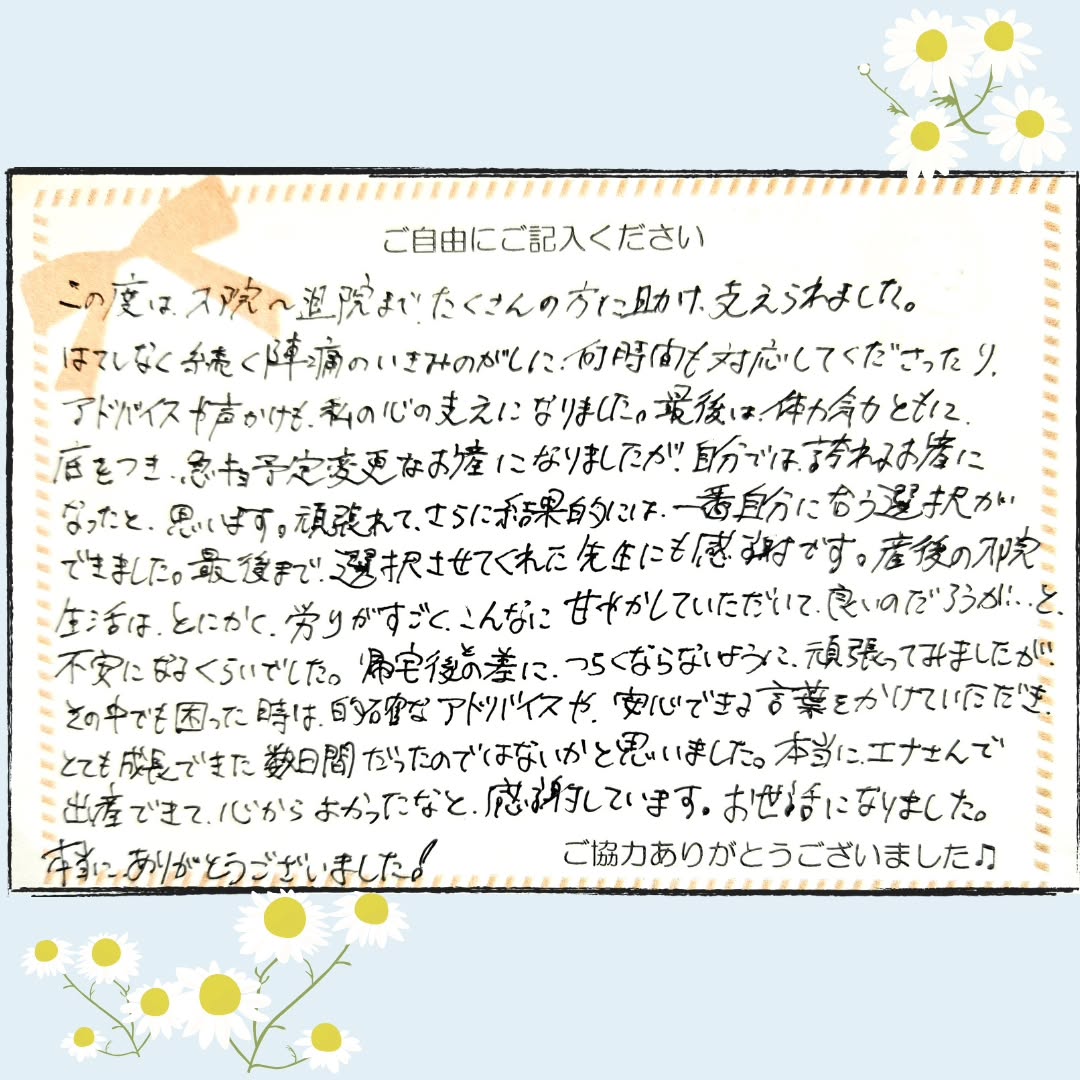 ご自由にご記入ください
この度は、入院〜退院まで、たくさんの方に助け、支えられました。
はてしなく続く陣痛のいきみのがしに、何時間も対応してくださったり、
アドバイスや声かけも、私の心の支えになりました。最後は、体力気力ともに、
底をつき、急きょ予定変更なお産になりましたが、自分では、誇れるお産に
なったと、思います。頑張れて、さらに結果的には、一番自分に合う選択が
できました。最後まで、選択させてくれた先生にも感謝です。産後の入院
生活は、とにかく、労りがすごく、こんなに甘やかしていただいて、良いのだろうが…と、
不安になるくらいでした。帰宅後との差に、つらくならないように、頑張ってみましたが、
その中でも困った時は、的確なアドバイスや、安心できる言葉をかけていただき、
とても成長できた数日間だったのではないかと思いました。本当に、エナさんで
出産できて、心からよかったなと、感謝しています。お世話になりました。
本当に、ありがとうございました!
ご協力ありがとうございました♫